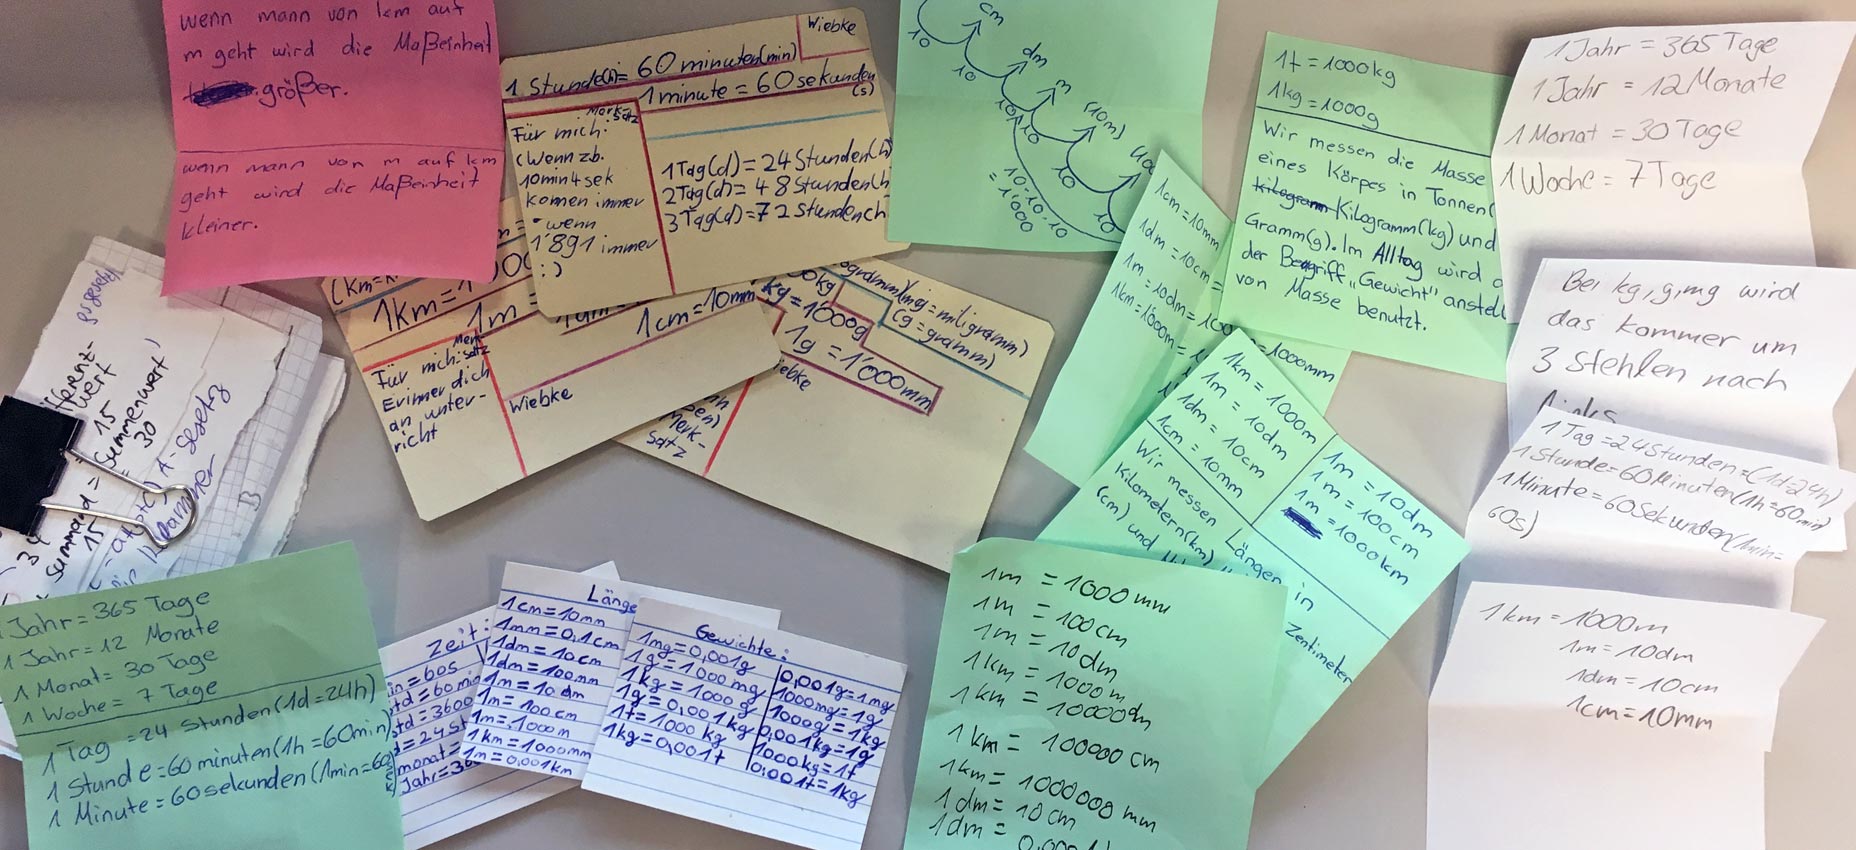 wenn mann von km auf
m geht wird die Maßeinheit
größer.
wenn mann von m auf km
geht wird die Maßeinheit
kleiner.
Wiebke
1 Stunde(h)= 60 minuten(min)
1 minute = 60 sekunden
(s)
Merk-
satz
Für mich:
(Wenn zb.
10min4sek
komen immer
wenn
1'891 immer
:)
1 Tag(d) = 24 Stunden(h)
2 Tag(d) = 48 Stunden(h
3 Tag(d) = 72 Stunden(h
(km=
1km=1
1m
1cm=10mm
Merk
satz
Für mich:
Erinner dich
an unter-
richt
Wiebke
(mg = miligramm)
(g = gramm)
kg = 1000g
1g = 1'000mm
iebke
Merk-
satz
cm
dm
m
(10m)
10
10
10
10
10
10
10·10·10
= 1'000
1cm = 10mm
1dm = 10cm =
1m = 10dm = 100
1km = 1000m =
= 1000mm
1t = 1000kg
1kg = 1000g
Wir messen die Masse
eines Körpes in Tonnen(
kilogramm Kilogramm(kg) und
Gramm(g). Im Alltag wird
der Begriff „Gewicht" anstell
von Masse benutzt.
1 Jahr = 365 Tage
1 Jahr = 12 Monate
1 Monat = 30 Tage
1 Woche = 7 Tage
Bei kg, g, mg wird
das kommer um
3 stehlen nach
links
1 Tag = 24 Stunden = (1d=24h)
1 Stunde = 60 Minuten (1h = 60 min)
1 Minute = 60 Sekunden (1min =
60s)
1km = 1000m
1m = 10dm
1dm = 10cm
1cm = 10mm
1km = 1000m
1m = 10dm
1dm = 10cm
1cm = 10mm
1m = 10dm
1m = 100cm
1m = 1000km
Wir messen Längen in
Kilometern(km)
Zentimeter
(cm) und
1m = 1000mm
1m = 100cm
1m = 10dm
1km = 1000m
1km = 10000dm
1km = 100000 cm
1km = 1000000 mm
1dm = 10cm
1dm =
wert
15
Summenwert
30
34
Summand
15
A-Gesetz
Klammer
B
1 Jahr = 365 Tage
1 Jahr = 12 Monate
1 Monat = 30 Tage
1 Woche = 7 Tage
1 Tag = 24 Stunden (1d = 24h)
1 Stunde = 60 minuten (1h = 60min)
1 Minute = 60 sekunden (1min = 60s
Zeit:
in = 60s
td = 60 min
td = 3600
d = 24 St
monat =
Jahr = 36
Länge
1cm = 10mm
1mm = 0,1cm
1dm = 10cm
1dm = 100mm
1m = 10dm
1m = 100cm
1m = 1000m
1km = 1000mm
1m = 0,001km
Gewichte:
1mg = 0,001g
1g = 1000 mg
1kg = 1000 g
1g = 0,001kg
1t = 1000 kg
1kg = 0,001t
0,001g = 1mg
1000mg = 1g
1000g = 1kg
0,001kg = 1g
1000kg = 1t
0,001t = 1kg